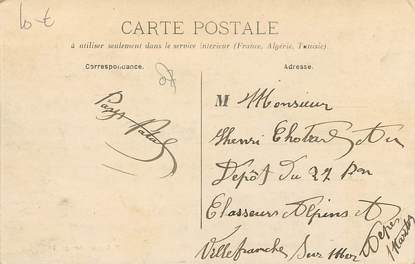 10 €
CARTE POSTALE
à utiliser seulement dans le service intérieur (France, Algérie, Tunisie).
Correspondance.
Adresse.
M Monsieur
Henri
Dépôt du 27 Bon
Classeurs Alpins
Villefranche Sur Mer
Alpes
Mariti